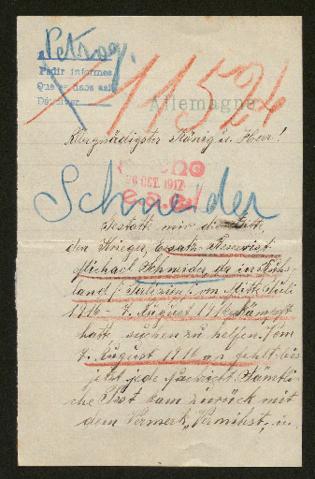 Petrog.
Pedir informes
Que se haga saber
11524
Allemagne
Allergnädigster König u. Herr!
26 OCT. 1917
Schneider
Gestatte mir die Bitte,
den Krieger, Ersatz-Reservist
Michael Schneider, der in Ruß-
land im Mitte Juli
1916 - 7. August 1916 gekämpft
hatte, suchen zu helfen. Vom
7. August 1916 an fehlt bis
jetzt jede Nachricht. Sämtli-
che Post kam zurück mit
dem Vermerk „Vermißt", u.